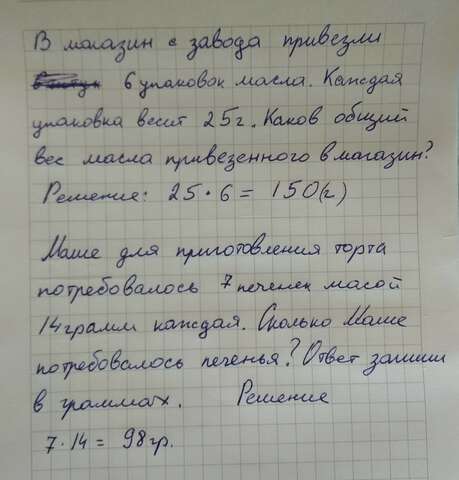 В магазин с завода привезли
6 упаковок масла. Каждая
упаковка весит 25г. Каков общий
вес масла привезенного в магазин?
Решение: 25·6 = 150(г)
Маше для приготовления торта
потребовалось 7 печенек масой
14 грамм каждая. Сколько Маше
потребовалось печенья? Ответ запиши
в граммах. Решение
7·14 = 98гр.